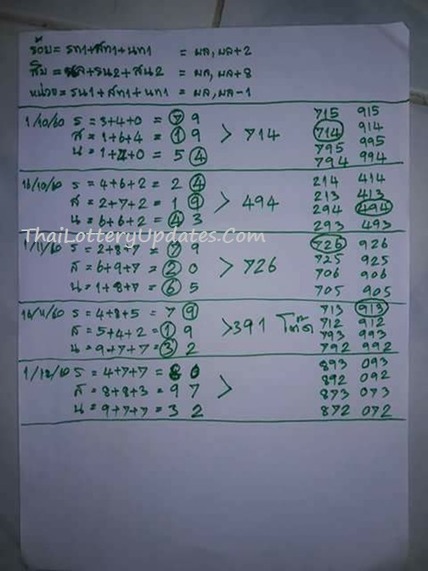 ร้อย = รท1+สท1+นท1 = ผล, ผล+2
สิบ = ผล+รน2+สน2 = ผล, ผล+8
หน่วย = รน1+สท1+นท1 = ผล, ผล-1
1/10/60 ร = 3+4+0 = 7 9 715 915
ส = 1+6+4 = 1 9 > 714 714 914
น = 1+7+0 = 5 4 795 995
794 994
16/10/60 ร = 4+6+2 = 2 4 214 414
ส = 2+7+2 = 1 9 > 494 213 413
น = 6+6+2 = 4 3 294 494
293 493
ThaiLotteryUpdates.Com
1/11/60 ร = 2+8+7 = 7 9 726 926
ส = 6+9+7 = 2 0 > 726 725 925
น = 1+8+7 = 6 5 706 906
705 905
16/11/60 ร = 4+8+5 = 7 9 713 913
ส = 5+4+2 = 1 9 >391 โต๊ด 712 912
น = 9+7+7 = 3 2 793 993
792 992
1/12/60 ร = 4+7+7 = 8 0 893 093
ส = 8+8+3 = 9 7 > 892 092
น = 9+7+7 = 3 2 873 073
872 072